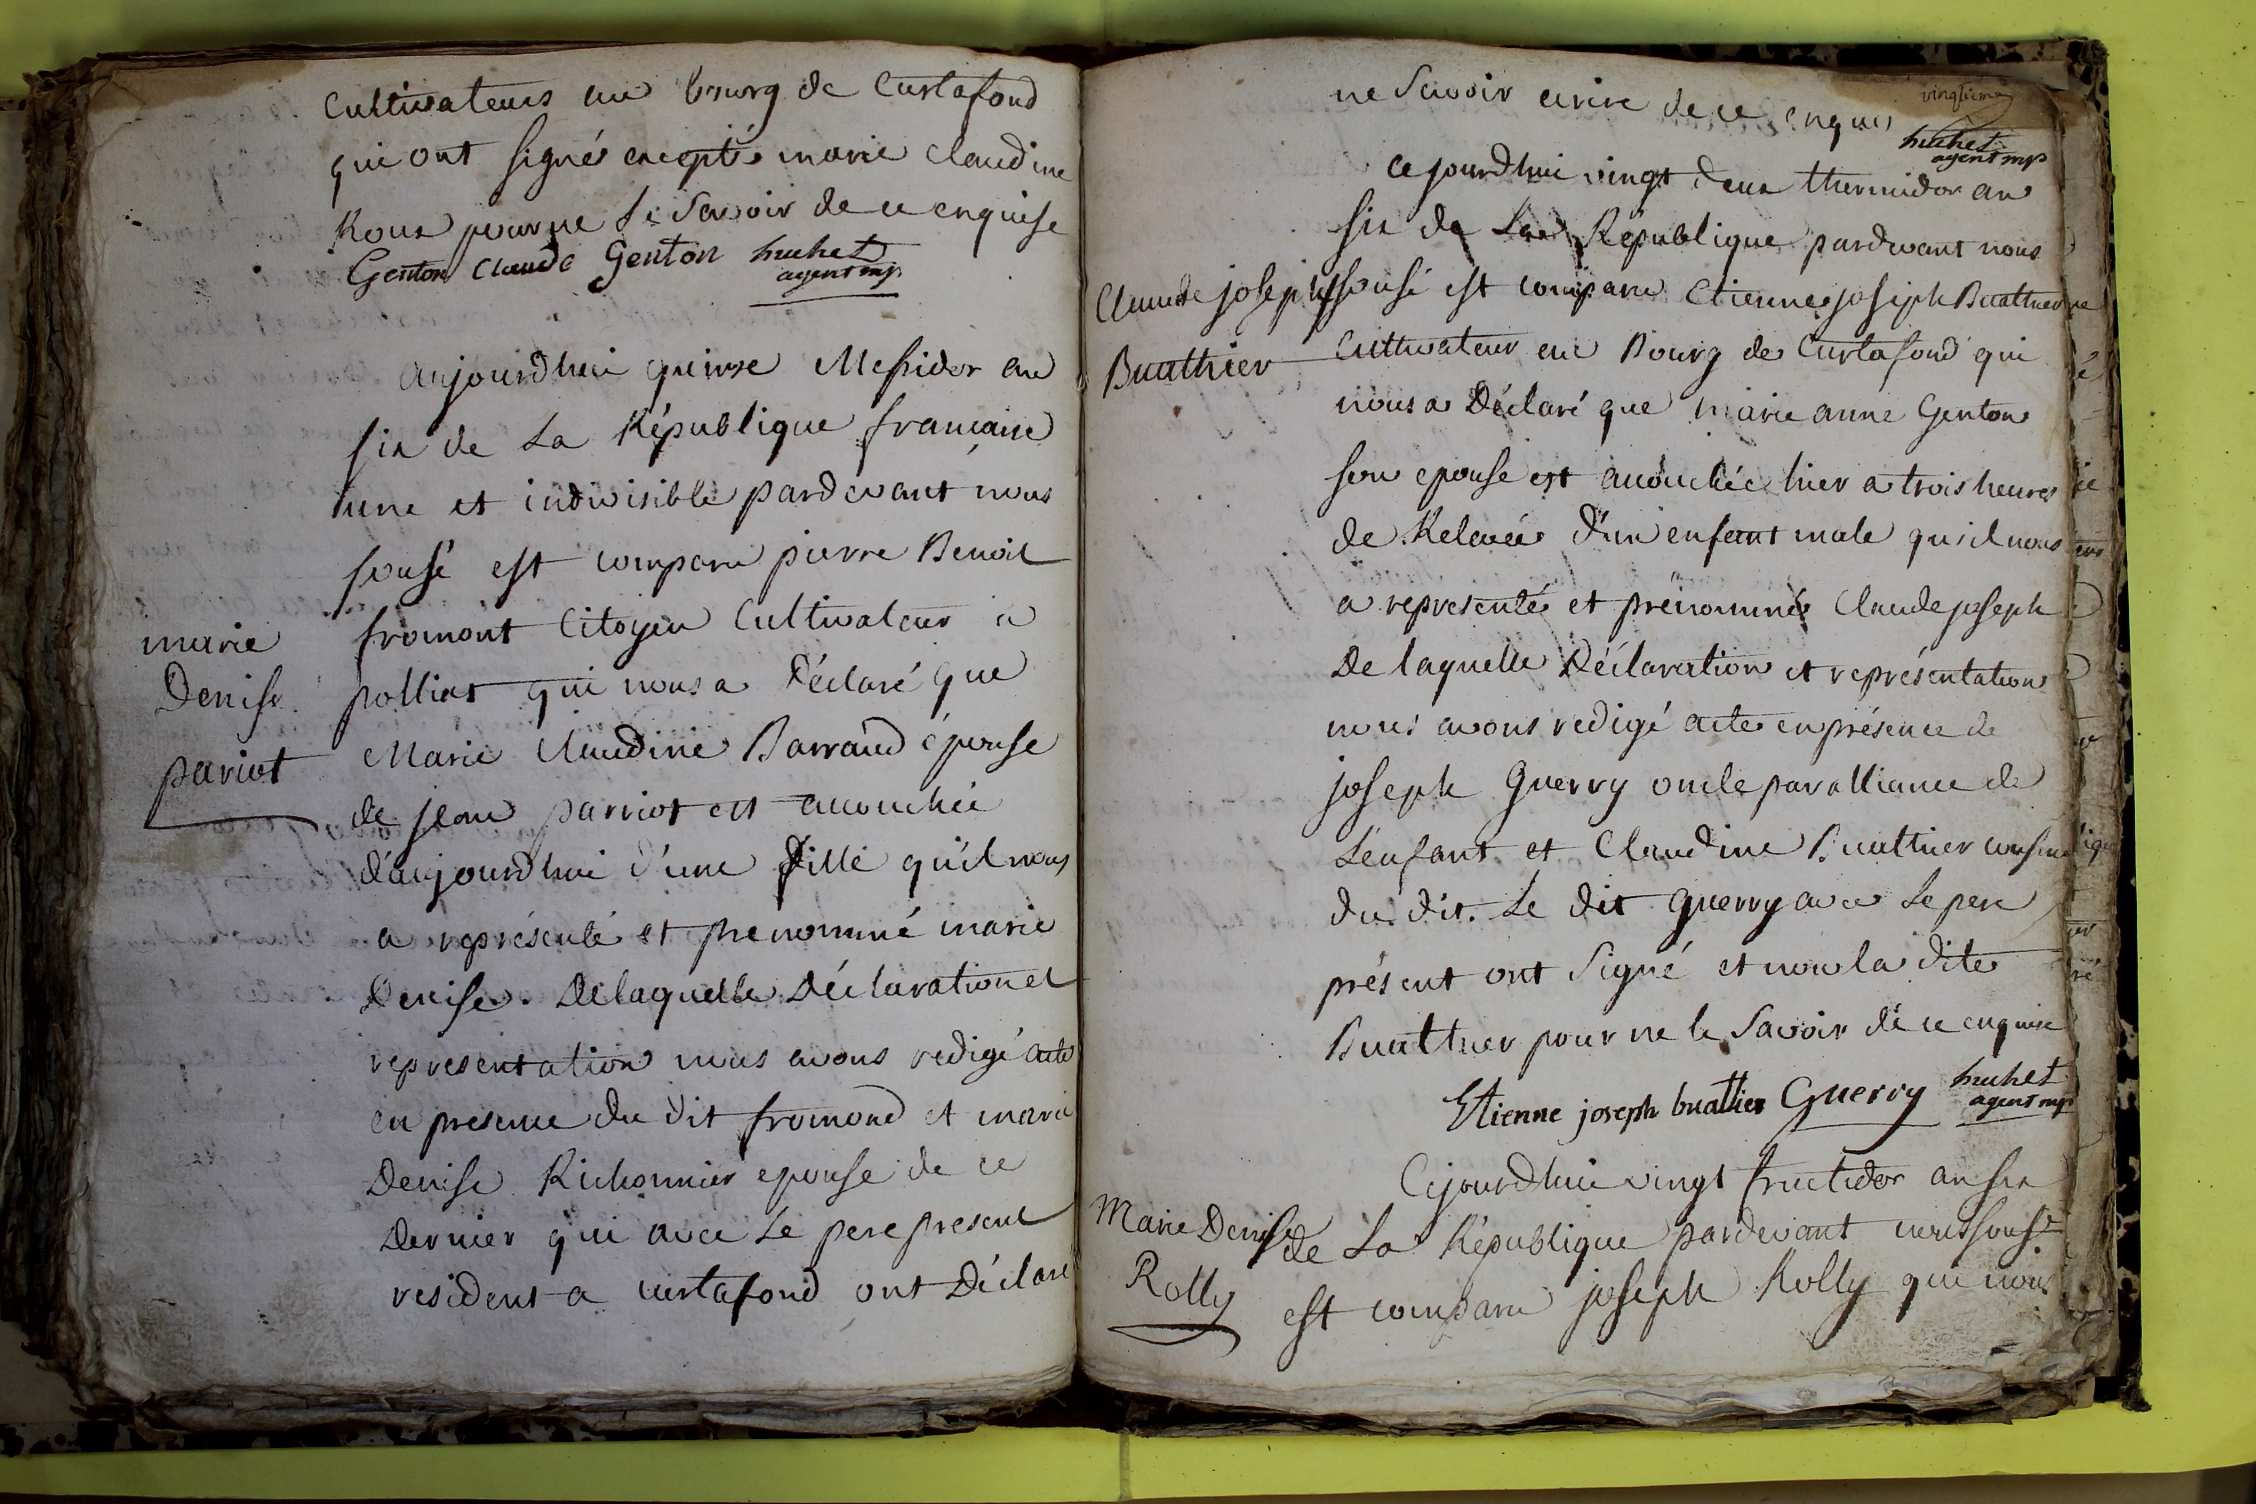 Cultivateurs au bourg de Curtafond
qui ont signés excepté marie Claudine
Roux pour ne le Savoir de ce enquise
Genton Claude Genton huchet
agent mp
aujourdhui quinze Messidor an
six de La République francaise
une et indivisible pardevant nous
sousé est comparu pierre Benoit
fromont Citoyen Cultivateur a
polliat qui nous a Déclaré que
Marie Claudine Barraud épouse
de jean parriot est accouchée
d'aujourdhui d'une fille qu'il nous
a représenté et prenommé marie
Denise. Delaquelle Déclaration et
representation nous avons redigé acte
en presence du dit fromond et marie
Denise Richonnier epouse de ce
Dernier qui avec Le pere present
resident a curtafond ont Déclaré
marie
Denise
pariot
vingtieme
ne Savoir ecrire de ce enquis
huchet
agent mp
Cejourdhui vingt deux thermidor an
six de La République pardevant nous
Soussé est comparu Etienne joseph Buathier
Cultivateur au Bourg de Curtafond qui
nous a Déclaré que marie anne Genton
son epouse est accouchée hier a trois heures
de Relevée d'un enfant male qu'il nous
a representé et prénommé Claude joseph
De laquelle Déclaration et représentation
nous avons redigé acte en présence de
joseph Guerry oncle par alliance de
L'enfant et Claudine Buathier cousine
du dit. Le dit Guerry avec Le pere
présent ont Signé et non la dite
Buathier pour ne le Savoir de ce enquise
Etienne joseph buathier Guerry huchet
agent mp
Claude joseph
Buathier
Cejourdhui vingt fructidor an six
de La République pardevant nous soussé
est comparu joseph Rolly qui nous
Marie Denise
Rolly